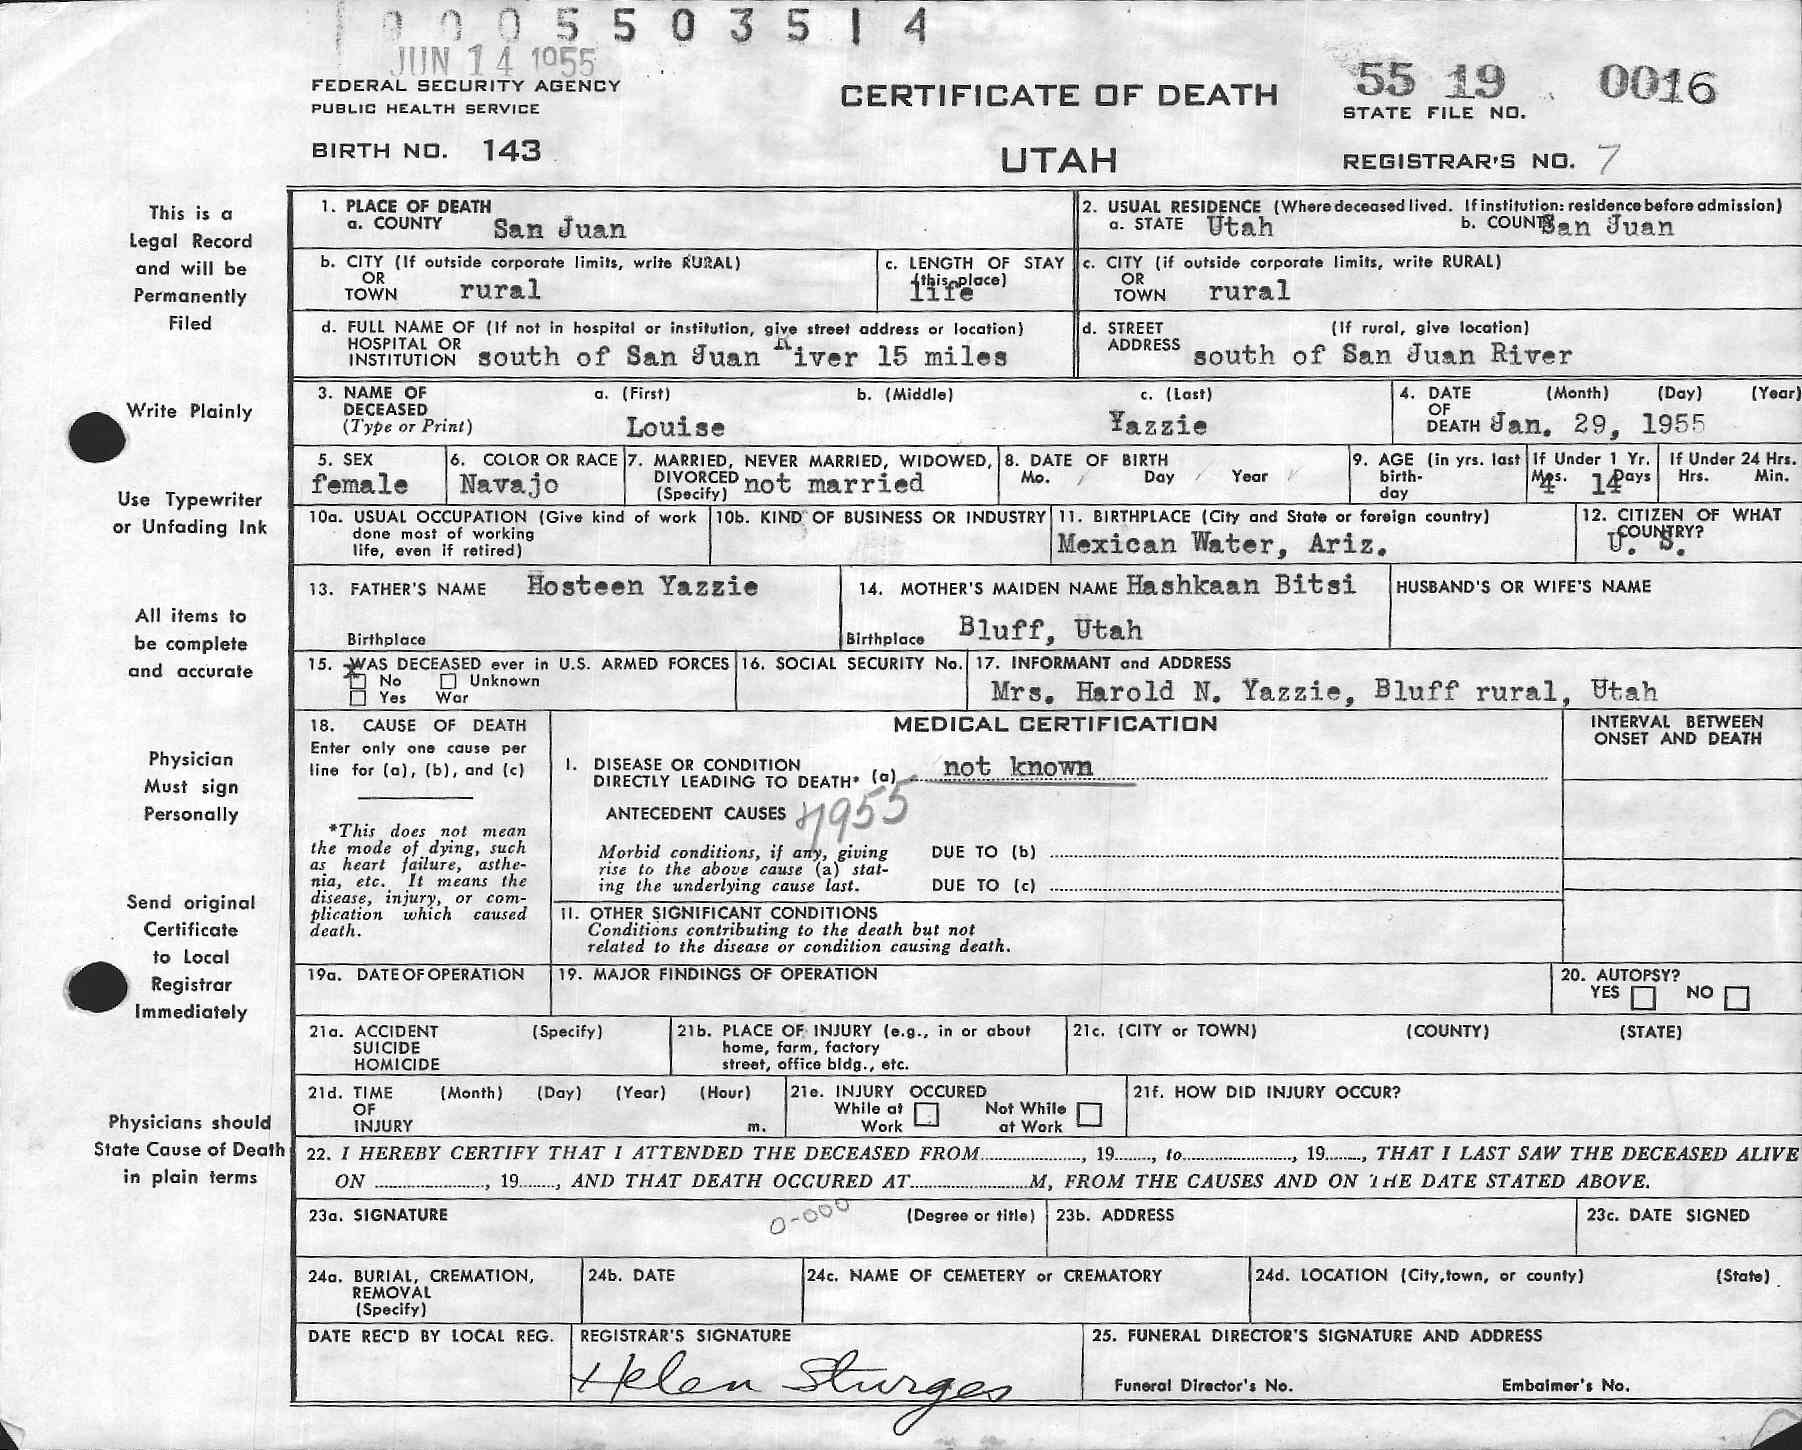 0005503514
JUN 14 1955
FEDERAL SECURITY AGENCY
PUBLIC HEALTH SERVICE
BIRTH NO. 143
CERTIFICATE OF DEATH
UTAH
55 19 0016
STATE FILE NO.
REGISTRAR'S NO. 7
This is a
Legal Record
and will be
Permanently
Filed
Write Plainly
Use Typewriter
or Unfading Ink
All items to
be complete
and accurate
Physician
Must sign
Personally
Send original
Certificate
to Local
Registrar
Immediately
Physicians should
State Cause of Death
in plain terms
1. PLACE OF DEATH
a. COUNTY San Juan
2. USUAL RESIDENCE (Where deceased lived. If institution: residence before admission)
a. STATE Utah b. COUNTY San Juan
b. CITY (If outside corporate limits, write RURAL)
OR
TOWN rural
c. LENGTH OF STAY
(this place)
life
c. CITY (if outside corporate limits, write RURAL)
OR
TOWN rural
d. FULL NAME OF (If not in hospital or institution, give street address or location)
HOSPITAL OR
INSTITUTION south of San Juan River 15 miles
d. STREET (If rural, give location)
ADDRESS south of San Juan River
3. NAME OF a. (First) b. (Middle) c. (Last)
DECEASED
(Type or Print) Louise Yazzie
4. DATE (Month) (Day) (Year)
OF
DEATH Jan. 29, 1955
5. SEX
female
6. COLOR OR RACE
Navajo
7. MARRIED, NEVER MARRIED, WIDOWED,
DIVORCED
(Specify) not married
8. DATE OF BIRTH
Mo. Day Year
9. AGE (in yrs. last
birth-
day
If Under 1 Yr.
Mos. Days
4 14
If Under 24 Hrs.
Hrs. Min.
10a. USUAL OCCUPATION (Give kind of work
done most of working
life, even if retired)
10b. KIND OF BUSINESS OR INDUSTRY
11. BIRTHPLACE (City and State or foreign country)
Mexican Water, Ariz.
12. CITIZEN OF WHAT
COUNTRY?
U. S.
13. FATHER'S NAME Hosteen Yazzie
Birthplace
14. MOTHER'S MAIDEN NAME Hashkaan Bitsi
Birthplace Bluff, Utah
HUSBAND'S OR WIFE'S NAME
15. WAS DECEASED ever in U.S. ARMED FORCES
x No Unknown
Yes War
16. SOCIAL SECURITY No.
17. INFORMANT and ADDRESS
Mrs. Harold N. Yazzie, Bluff rural, Utah
18. CAUSE OF DEATH
Enter only one cause per
line for (a), (b), and (c)
*This does not mean
the mode of dying, such
as heart failure, asthe-
nia, etc. It means the
disease, injury, or com-
plication which caused
death.
MEDICAL CERTIFICATION
INTERVAL BETWEEN
ONSET AND DEATH
I. DISEASE OR CONDITION
DIRECTLY LEADING TO DEATH* (a) not known
ANTECEDENT CAUSES
Morbid conditions, if any, giving
rise to the above cause (a) stat-
ing the underlying cause last.
DUE TO (b)
DUE TO (c)
II. OTHER SIGNIFICANT CONDITIONS
Conditions contributing to the death but not
related to the disease or condition causing death.
19a. DATE OF OPERATION
19. MAJOR FINDINGS OF OPERATION
20. AUTOPSY?
YES NO
21a. ACCIDENT (Specify)
SUICIDE
HOMICIDE
21b. PLACE OF INJURY (e.g., in or about
home, farm, factory
street, office bldg., etc.
21c. (CITY or TOWN) (COUNTY) (STATE)
21d. TIME (Month) (Day) (Year) (Hour)
OF
INJURY m.
21e. INJURY OCCURED
While at Work Not While at Work
21f. HOW DID INJURY OCCUR?
22. I HEREBY CERTIFY THAT I ATTENDED THE DECEASED FROM........, 19......, to........, 19......, THAT I LAST SAW THE DECEASED ALIVE
ON ........, 19......, AND THAT DEATH OCCURED AT........M, FROM THE CAUSES AND ON THE DATE STATED ABOVE.
23a. SIGNATURE 0-000 (Degree or title)
23b. ADDRESS
23c. DATE SIGNED
24a. BURIAL, CREMATION,
REMOVAL
(Specify)
24b. DATE
24c. NAME OF CEMETERY or CREMATORY
24d. LOCATION (City, town, or county) (State)
DATE REC'D BY LOCAL REG.
REGISTRAR'S SIGNATURE
Helen Sturges
25. FUNERAL DIRECTOR'S SIGNATURE AND ADDRESS
Funeral Director's No. Embalmer's No.